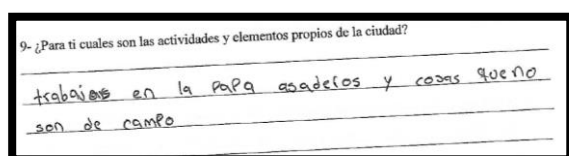 9- ¿Para ti cuales son las actividades y elementos propios de la ciudad?
en la papa asaderos y cosas que no
son de campo